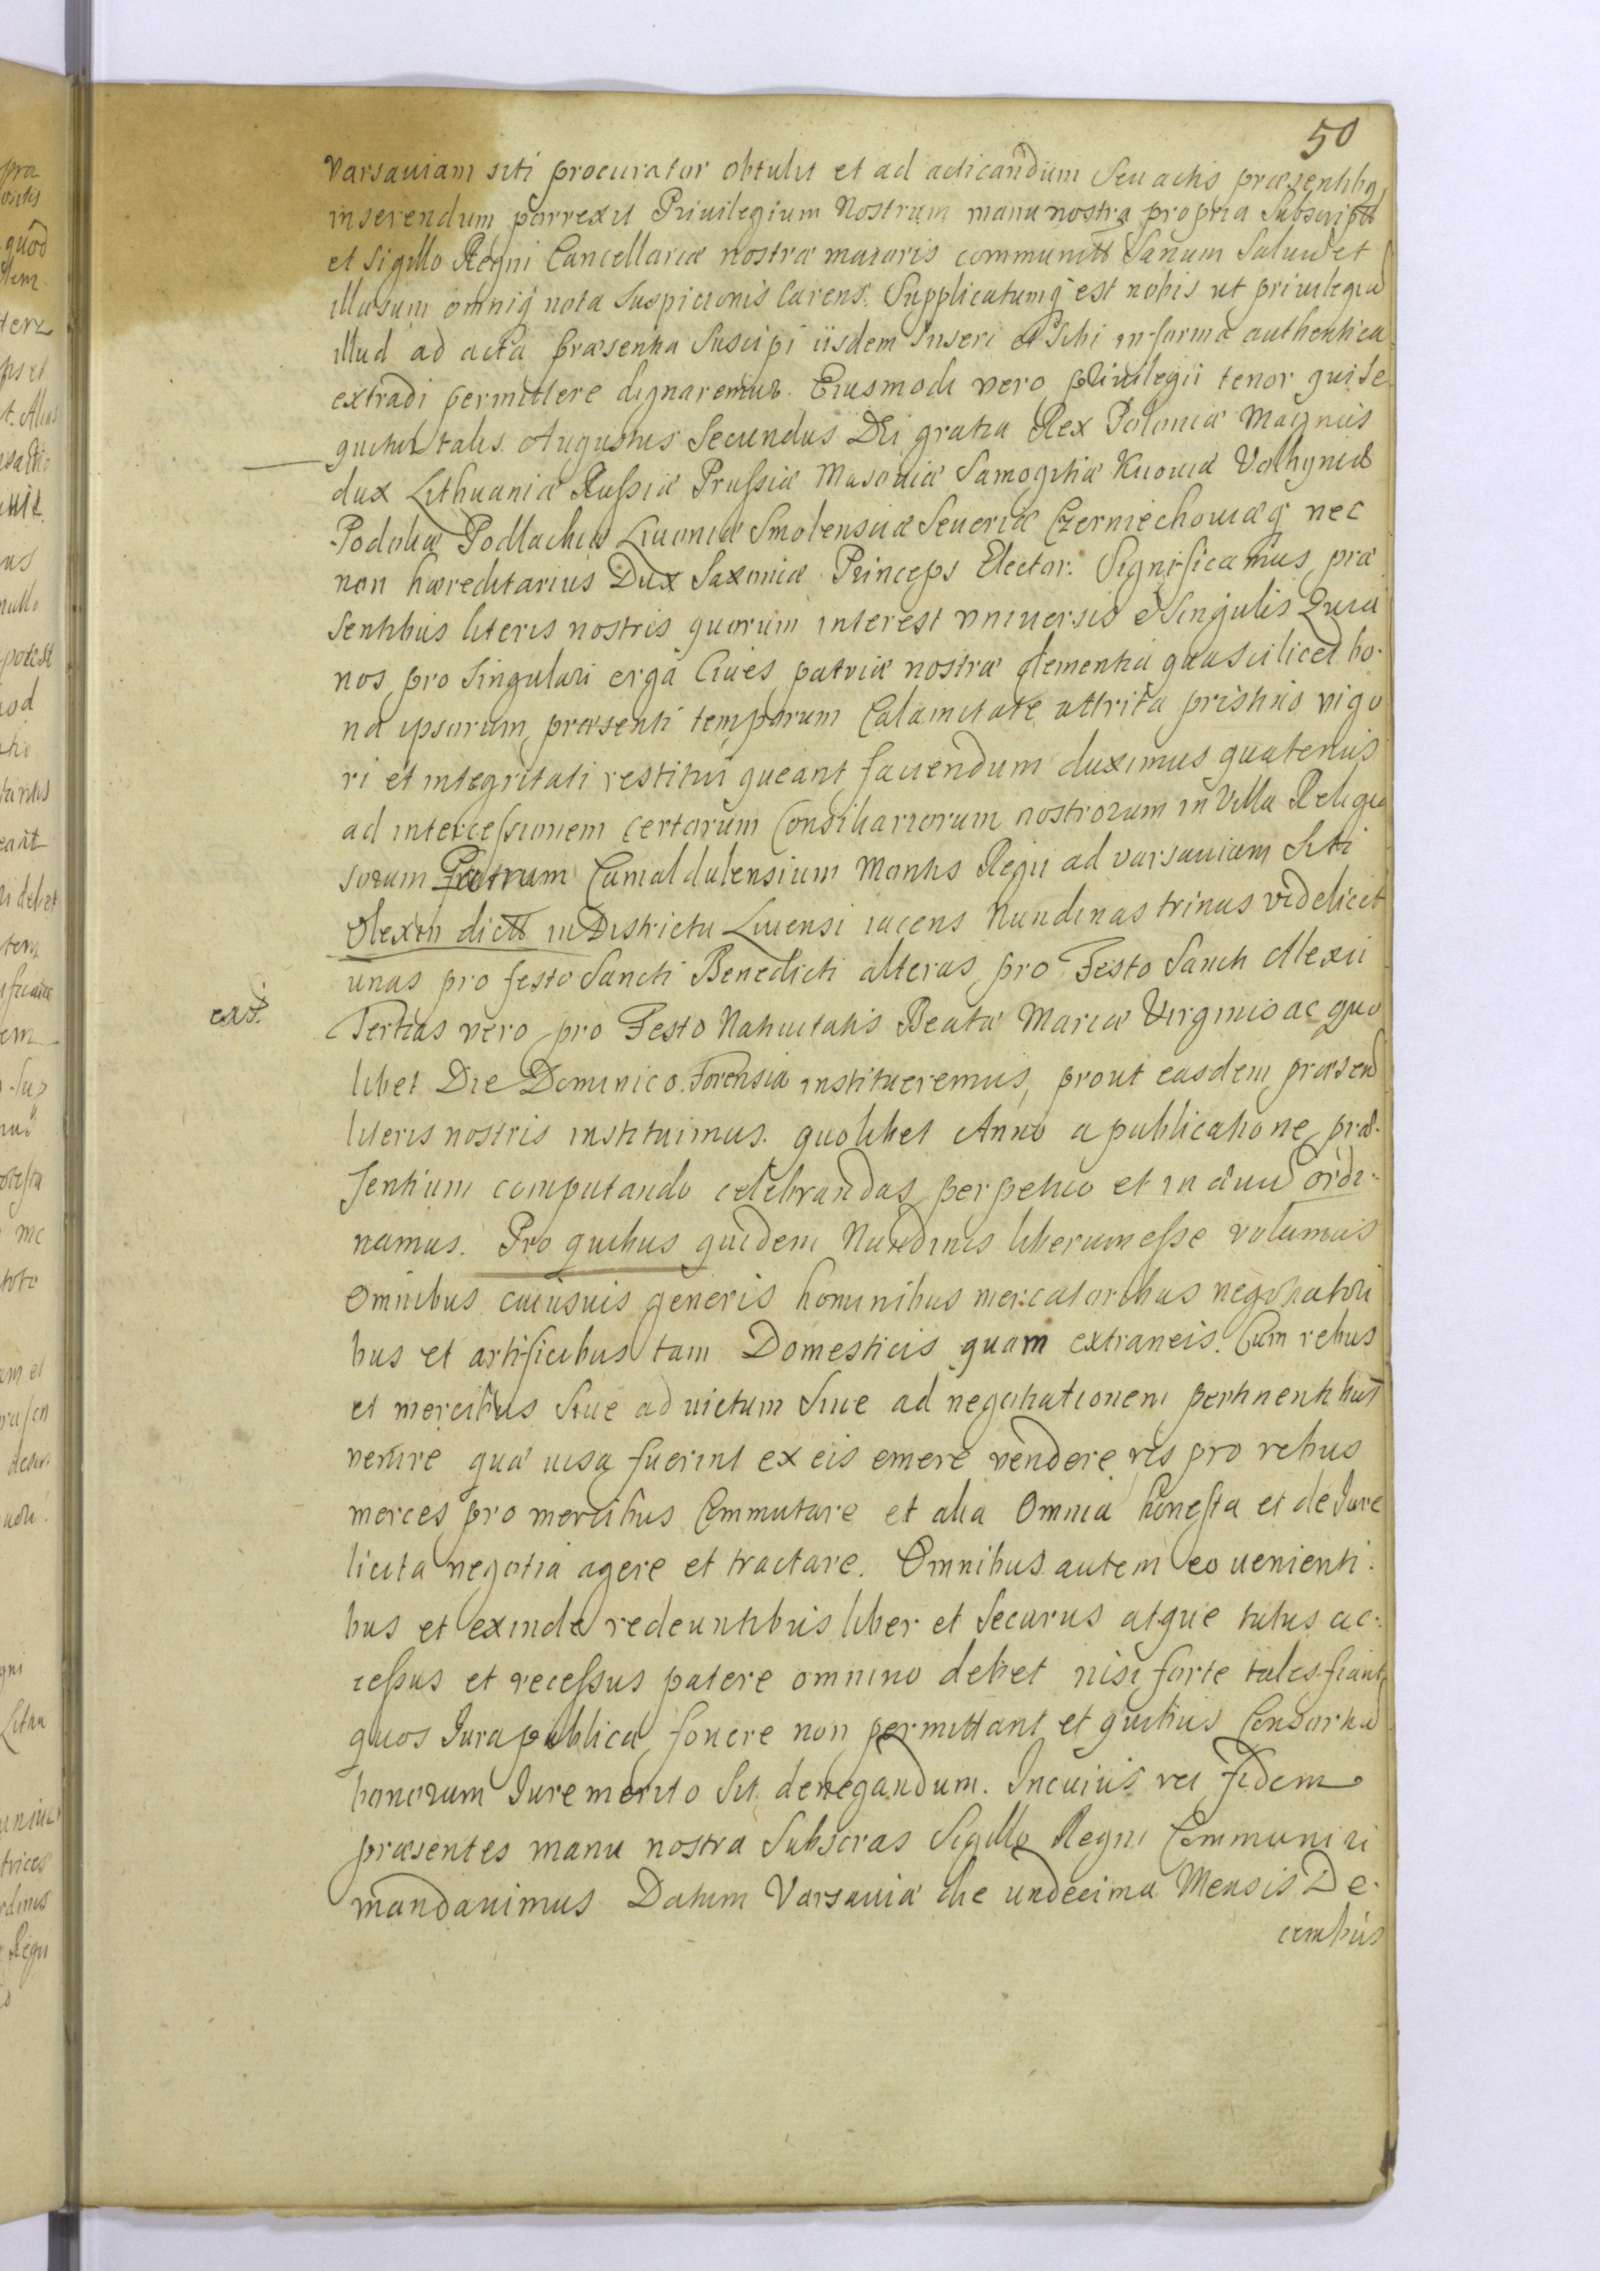 50
Varsauiam siti procurator obtulit et ad acticandum seu actis præsentibq
inserendum porrexit Priuilegium Nostrum manu nostra propria Subscriptt
et sigillo Regni Cancellariæ nostræ maioris communitt Sanum Saluu et
illæsum omniq nota Suspicionis Carens. Supplicatumq est nobis ut priuilegiu
illud ad acta præsentia Suscipi iisdem Inseri et Sibi in forma authentica
extradi permittere dignaremur. Eiusmodi vero priuilegii tenor qui se
quitur talis. Augustus Secundus Dei gratia Rex Poloniæ Magnus
dux Lithuaniæ Russiæ Prussiæ Masouiæ Samogitiæ Kiiouiæ Volhyniæ
Podoliæ Podlachiæ Liuoniæ Smolensciæ Seueriæ Czerniechouiæq nec
non hæreditarius Dux Saxoniæ Princeps Elector. Significamus præ
sentibus literis nostris quorum interest vniuersis & Singulis Quia
nos pro Singulari erga Ciues patriæ nostræ clementia qua scilicet bo-
na ipsorum præsenti temporum Calamitate attrita pristino vigo
ri et integritati restitui queant faciendum duximus quatenus
ad intercessionem certorum Consiliariorum nostrorum in Villa Religio
sorum Patrum Camaldulensium Montis Regii ad varsauiam Siti
Olexin dictt in Districtu Liuensi iacens Nundinas trinas videlicet
unas pro festo Sancti Benedicti alteras pro Festo Sancti Alexii
eas.
Tertias vero pro Festo Natiuitatis Beatæ Mariæ Virginis ac quo
libet Die Dominico Forensia institueremus, prout easdem præsen
literis nostris instituimus. quolibet Anno a publicatione præ-
sentium computando celebrandas perpetuo et in æuu ordi-
namus. Pro quibus quidem Nundinis liberum esse volumus
Omnibus cuiusuis generis hominibus mercatoribus negotiatori
bus et artificibus tam Domesticis quam extraneis. Cum rebus
et mercibus Siue ad uictum Siue ad negotiationem pertinentibus
venire quæ uisa fuerint ex eis emere vendere res pro rebus
merces pro mercibus Commutare et alia Omnia honesta et de Iure
licita negotia agere et tractare. Omnibus autem eo uenienti-
bus et exinde redeuntibus liber et Securus atque tutus ac-
cessus et recessus patere omnino debet nisi forte tales fiant
quos Iura publica fouere non permittant et quibus Consortiu
bonorum Iure merito Sit denegandum. In cuius rei fidem
præsentes manu nostra Subscras Sigillo Regni Communiri
mandauimus Datum Varsauiæ die undecima Mensis De-
cembris